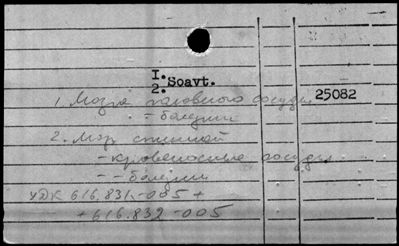 I.
2. Soavt.
25082
1. Мозга головного сосуды
" - болезни
2. Мозг спинной
- кровеносные сосуды
- - болезни
УДК 616.831.-005 +
+ 616.832-005